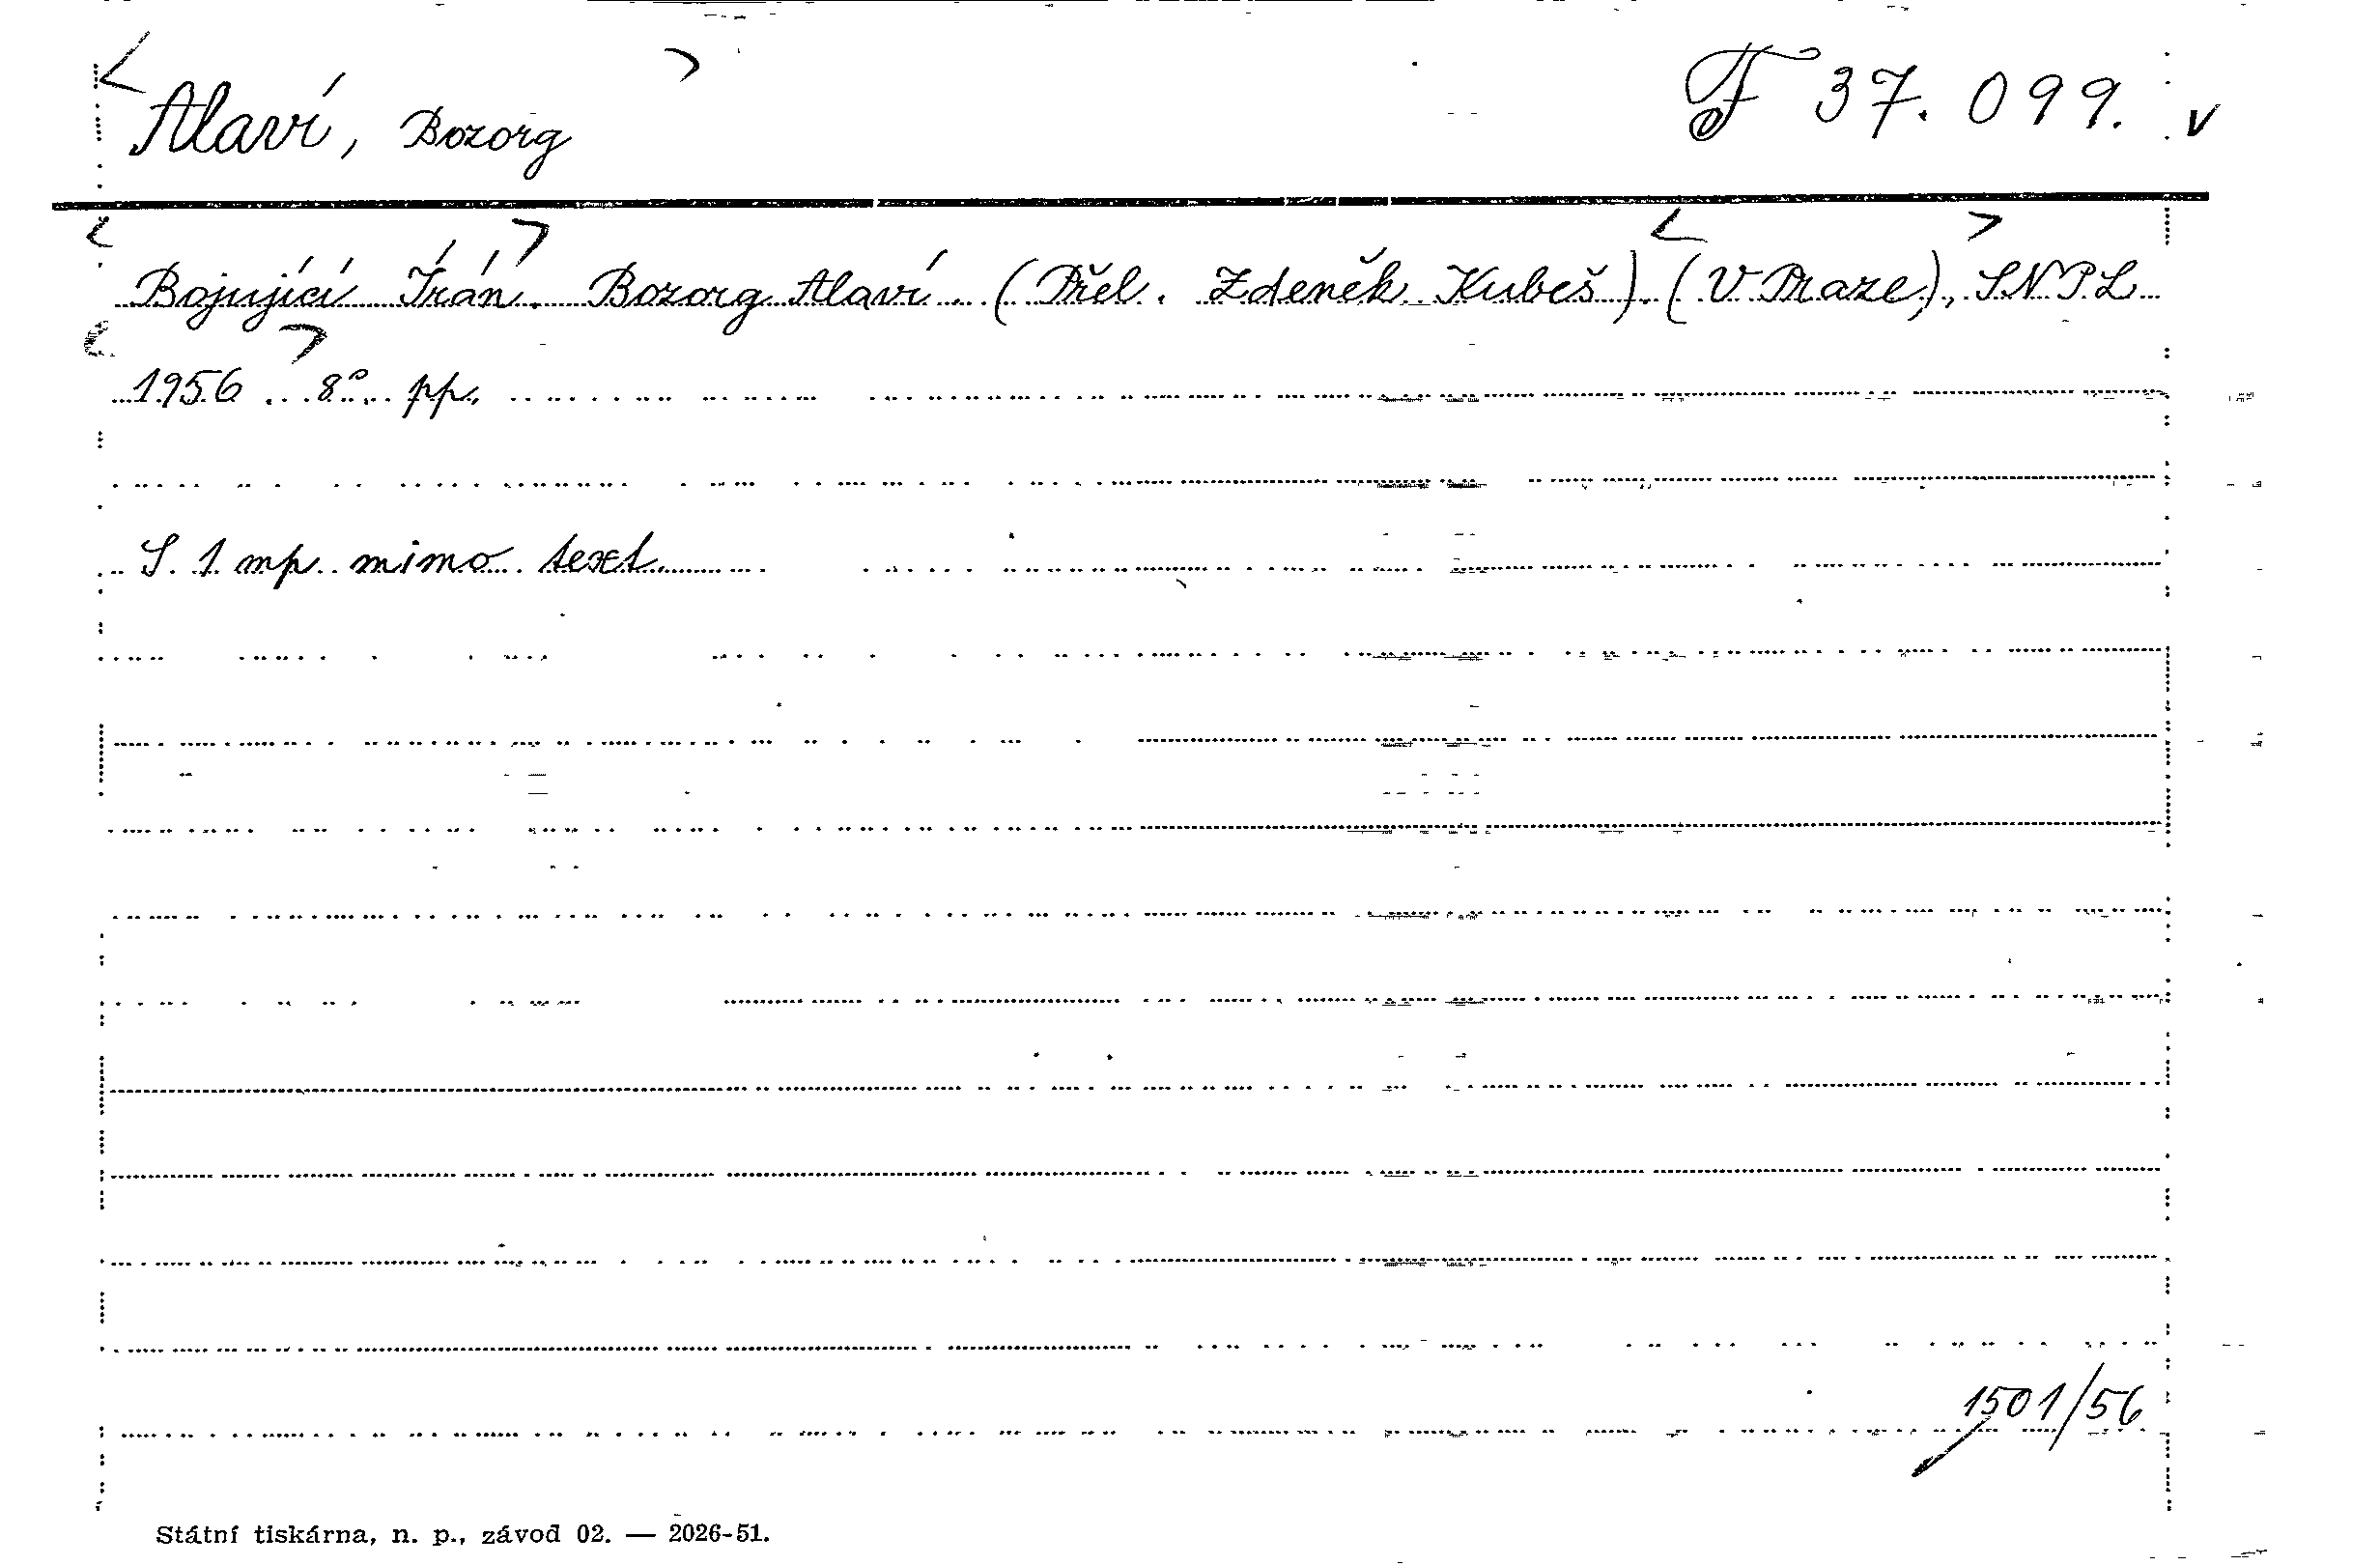 Alaví, Bozorg F 37.099. v
Bojující Írán. Bozorg Alaví. (Přel. Zdeněk Kubeš). (V Praze), SNPL
1956. 8°. pp.
S 1 mp mimo text.
1501/56
Státní tiskárna, n. p., závod 02. — 2026-51.